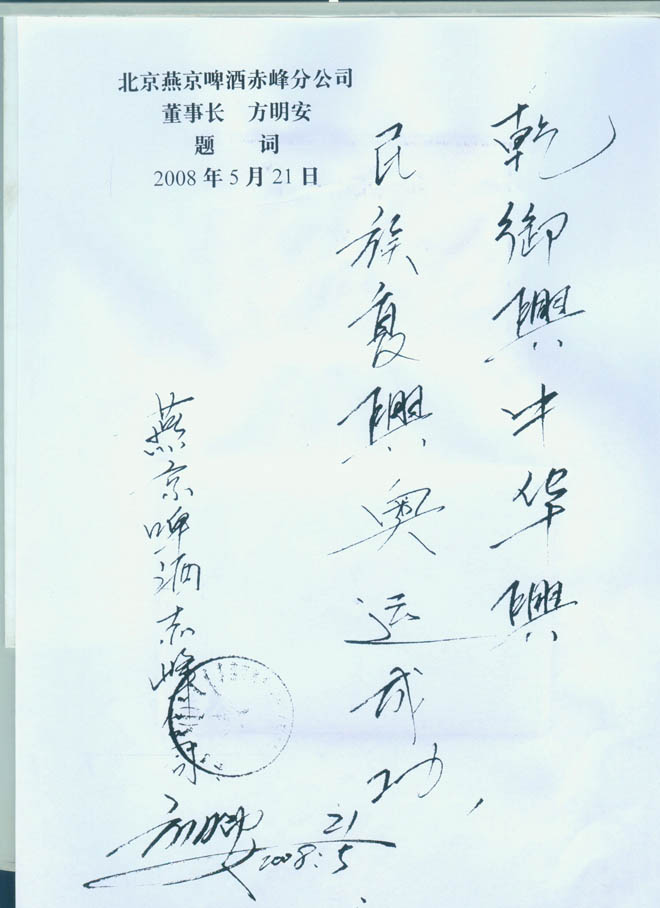 北京燕京啤酒赤峰分公司
董事长 方明安
题 词
2008 年 5 月 21 日
乾御興中华興
民族复興奥运成功
燕京啤酒赤峰
方明安
21
2008.5